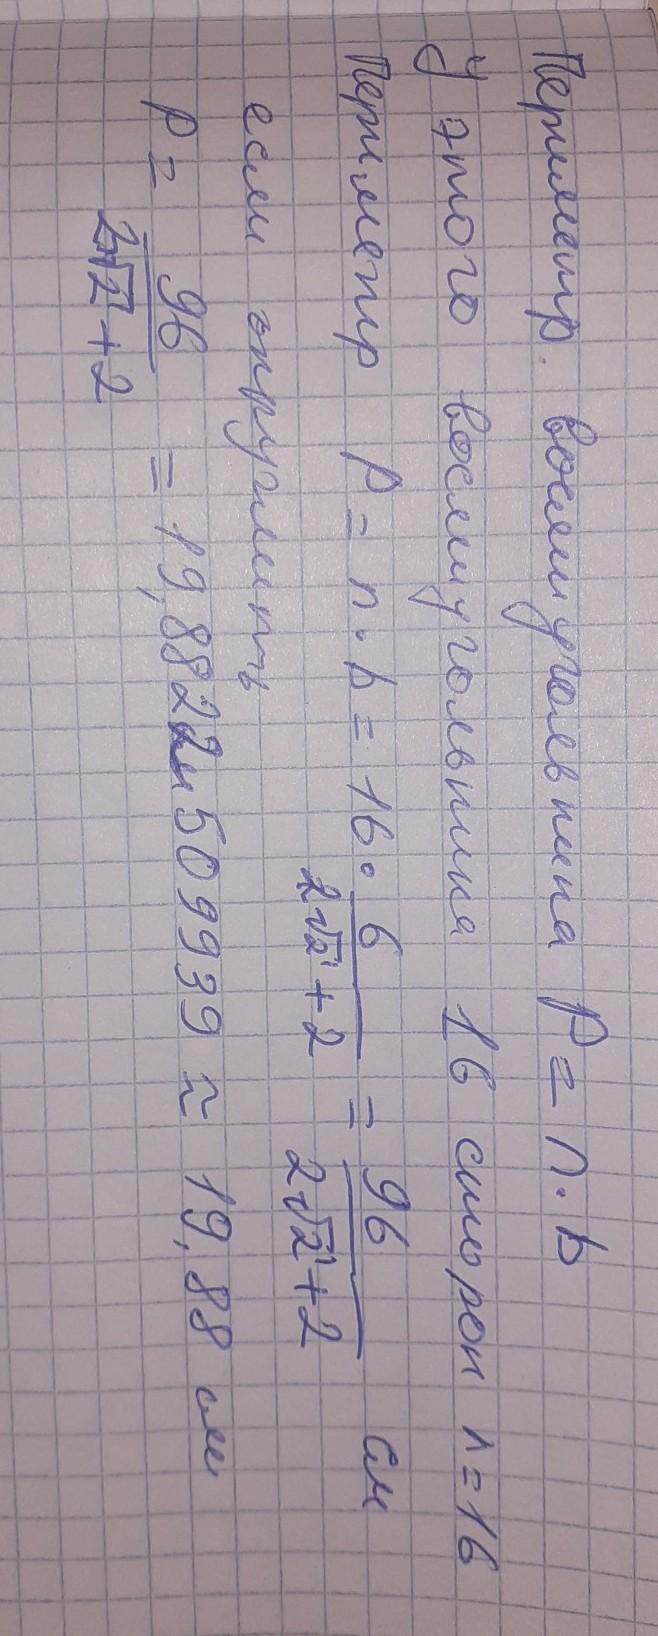 Периметр. восьмиугольника P = n · b
У этого восьмиугольника 16 сторон n = 16
Периметр P = n · b = 16 · 6/(2√2 + 2) = 96/(2√2 + 2) см
если округлить
P = 96/(2√2 + 2) = 19,882509939 ≈ 19,88 см